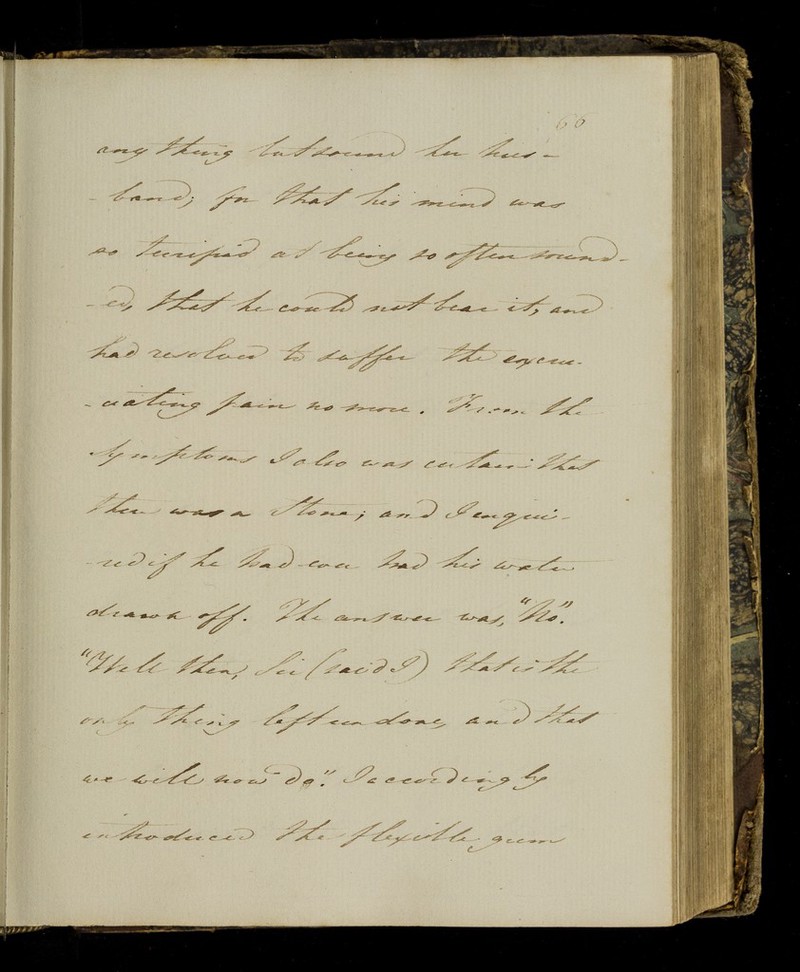 66
any thing but sound her hus-
-band; for that his mind was
so terrified at being so often sound-
-ed, that he could not bear it, and
had resolved to suffer the excru-
-ciating pain no more. From the
Symptoms I also was certain that
there was a Stone; and I enqui-
-red if he had ever had his water
drawn off. The answer was, "No".
"Well then, Sir (said I) that is the
only thing left undone, and that
we will now do". I accordingly
introduced the flexible gum